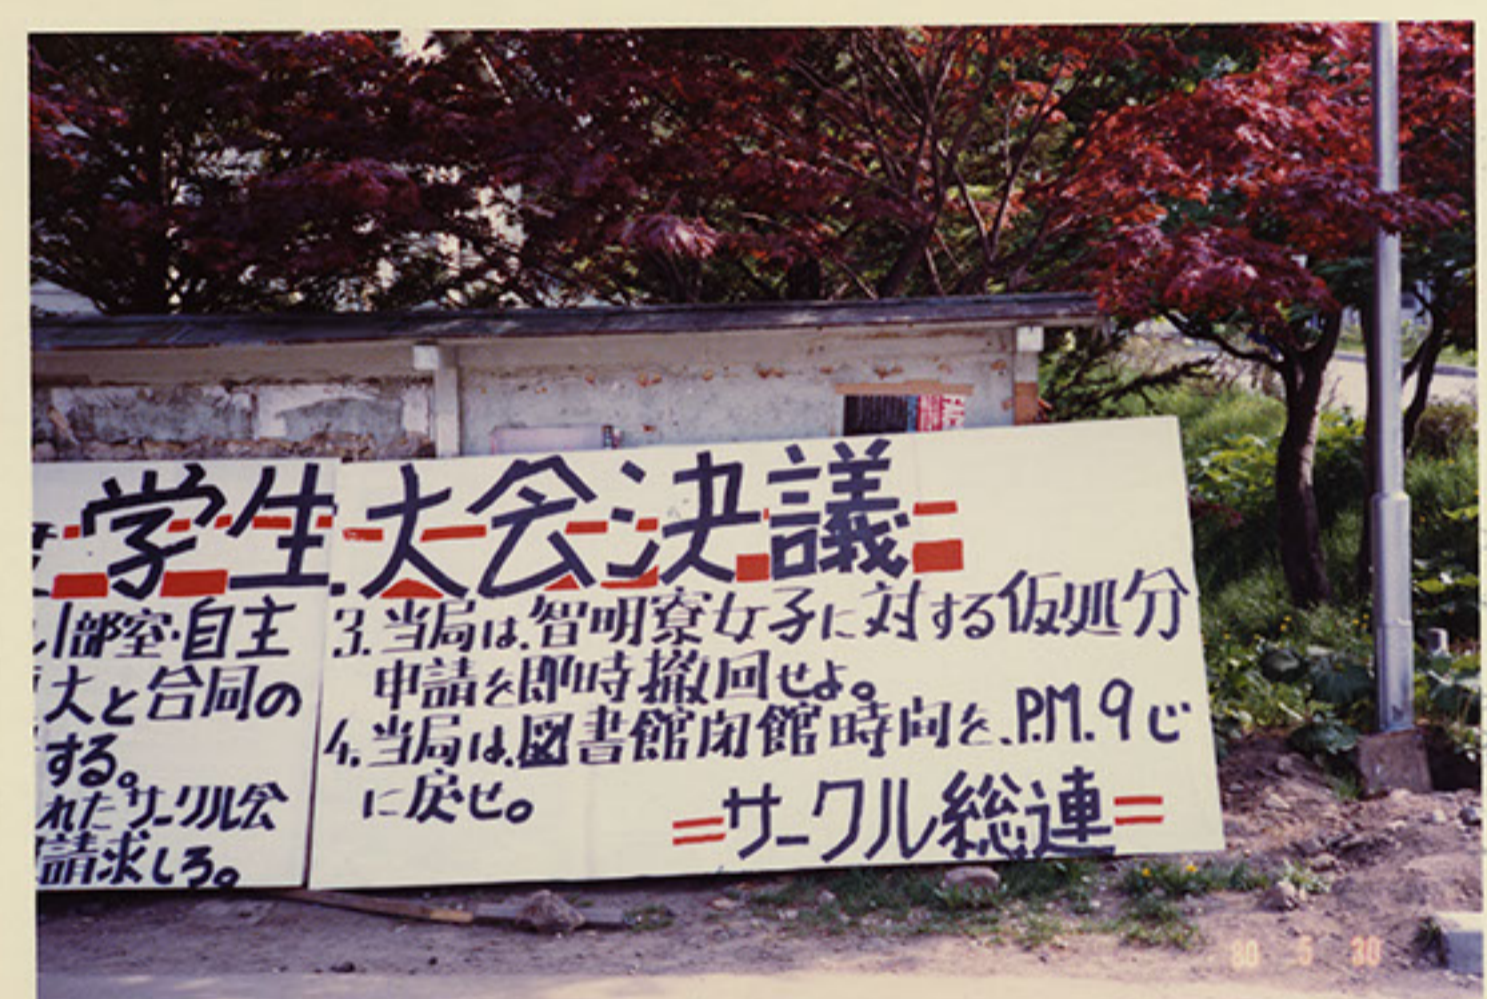 学生大会決議
部室・自主
大と合同の
する。
れたサークル公
請求しろ。
3.当局は、智明寮女子に対する仮処分
申請を即時撤回せよ。
4.当局は、図書館閉館時間を、P.M.9じ
に戻せ。
=サークル総連=
80 5 30